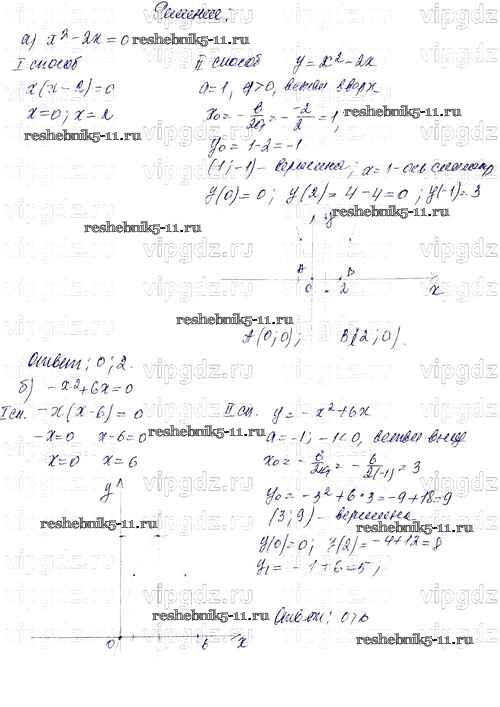 Решение:
а) x² - 2x = 0
I способ
x(x - 2) = 0
x = 0; x = 2
II способ y = x² - 2x
a = 1, a > 0, ветви вверх
x₀ = - b/2a = - -2/2 = 1,
y₀ = 1 - 2 = -1
(1; -1) - вершина; x = 1 - ось
y(0) = 0; y(2) = 4 - 4 = 0; y(-1) = 3
y
A B
0 2 x
A(0; 0); B(2; 0).
Ответ: 0; 2.
б) -x² + 6x = 0
I сп. -x(x - 6) = 0
-x = 0 x - 6 = 0
x = 0 x = 6
II сп. y = -x² + 6x
a = -1; -1 < 0, ветви вниз
x₀ = - b/2a = - 6/2(-1) = 3
y₀ = -3² + 6 · 3 = -9 + 18 = 9
(3; 9) - вершина
y(0) = 0; y(2) = -4 + 12 = 8
y₁ = -1 + 6 = 5;
y
0 6 x
Ответ: 0; 6
reshebnik5-11.ru
reshebnik5-11.ru
reshebnik5-11.ru
reshebnik5-11.ru
reshebnik5-11.ru
reshebnik5-11.ru
reshebnik5-11.ru
reshebnik5-11.ru
reshebnik5-11.ru
reshebnik5-11.ru
vipgdz.ru